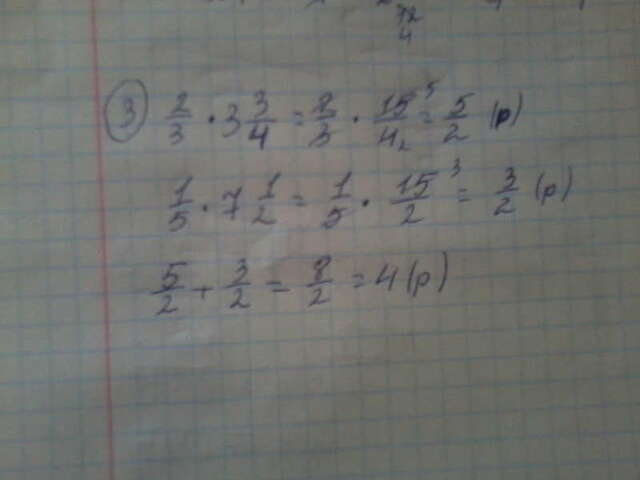 12
4
③ 2/3 · 3 3/4 = 2/3 · 15⁵/4₂ = 5/2 (р)
1/5 · 7 1/2 = 1/5 · 15³/2 = 3/2 (р)
5/2 + 3/2 = 8/2 = 4 (р)